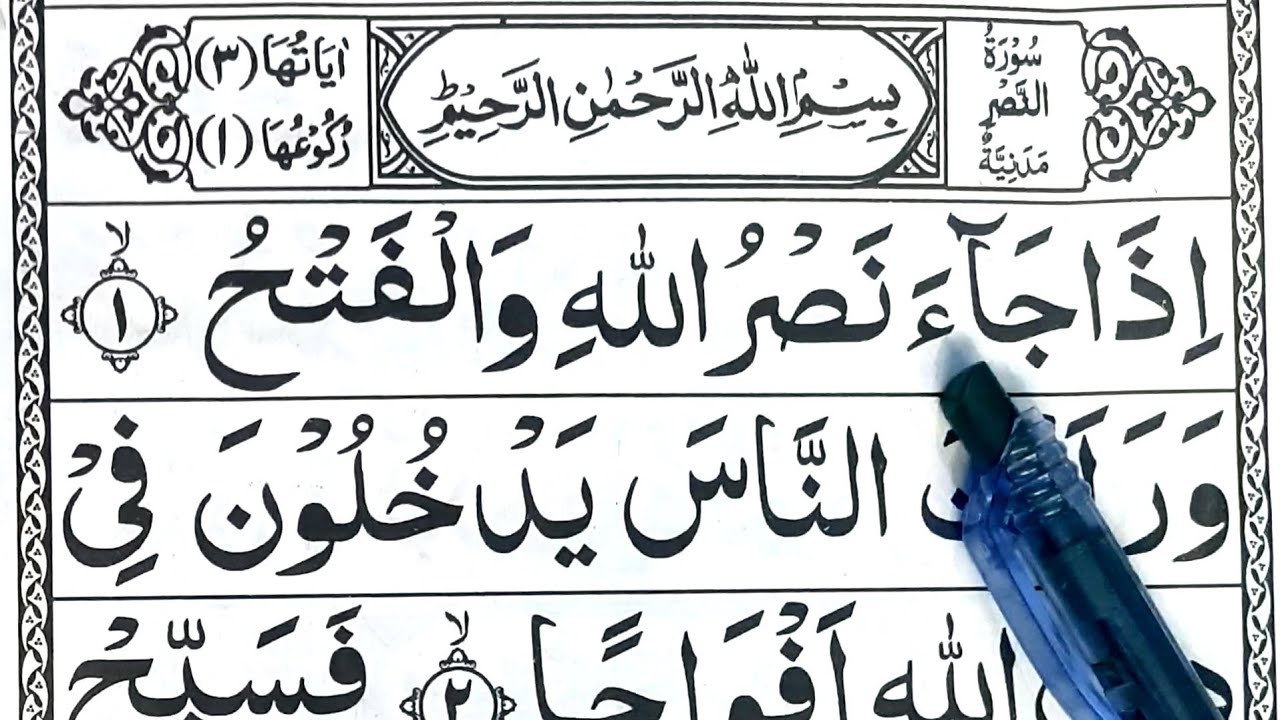 سُوْرَةُ النَّصْرِ مَدَنِيَّةٌ
بِسْمِ اللّٰهِ الرَّحْمٰنِ الرَّحِيْمِ ؕ
اٰيَاتُهَا (٣)
رُكُوْعُهَا (١)
اِذَا جَآءَ نَصْرُ اللّٰهِ وَالْفَتْحُ ۙ ١
النَّاسَ يَدْخُلُوْنَ فِيْ
اللّٰهِ اَفْوَاجًا ۙ ٢ فَسَبِّحْ